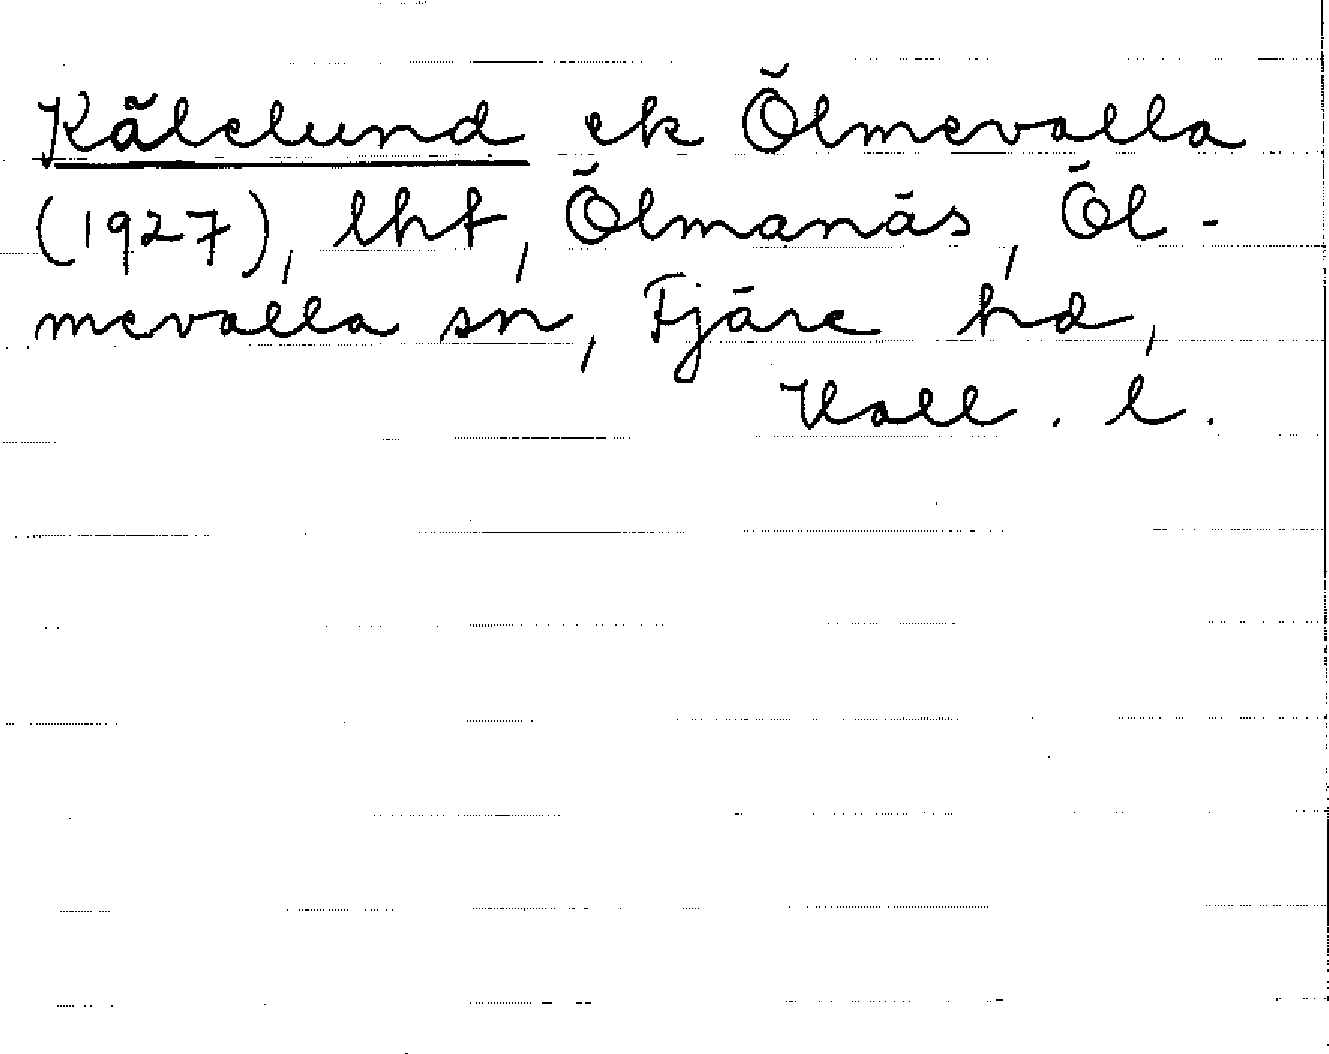 Källelund ek Ölmevalla
(1927), lht, Ölmanäs, Öl-
mevalla sn, Fjäre hd,
Hall. l.